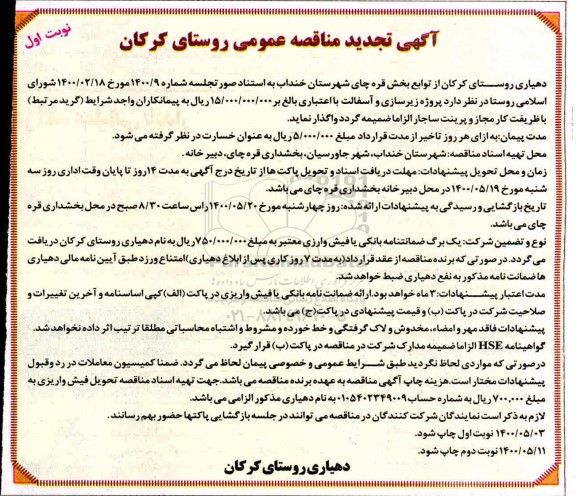 نوبت اول
آگهی تجدید مناقصه عمومی روستای کرکان
دهیاری روستای کرکان از توابع بخش قره چای شهرستان خنداب به استناد صورتجلسه شماره ۱۴۰۰/۹ مورخ ۱۴۰۰/۰۲/۱۸ شورای
اسلامی روستا در نظر دارد پروژه زیرسازی و آسفالت با اعتباری بالغ بر ۱۵/۰۰۰/۰۰۰/۰۰۰ ریال به پیمانکاران واجد شرایط (گرید مرتبط)
با ظریفت کار مجاز و پرینت ساجار الزاما ضمیمه گردد واگذار نماید.
مدت پیمان: به ازای هر روز تاخیر از مدت قرارداد مبلغ ۵/۰۰۰/۰۰۰ ریال به عنوان خسارت در نظر گرفته می شود.
محل تهیه اسناد مناقصه: شهرستان خنداب، شهر جاورسیان، بخشداری قره چای، دبیر خانه.
زمان و محل تحویل پیشنهادات: مهلت دریافت اسناد و تحویل پاکت ها از تاریخ درج آگهی به مدت ۱۴ روز تا پایان وقت اداری روز سه
شنبه مورخ ۱۴۰۰/۰۵/۱۹ در محل دبیر خانه بخشداری قره چای می باشد.
تاریخ بازگشایی و رسیدگی به پیشنهادات ارائه شده: روز چهارشنبه مورخ ۱۴۰۰/۰۵/۲۰ راس ساعت ۸/۳۰ صبح در محل بخشداری قره
چای می باشد.
نوع و تضمین شرکت: یک برگ ضمانتنامه بانکی یا فیش واریزی معتبر به مبلغ ۷۵۰/۰۰۰/۰۰۰ ریال به نام دهیاری روستای کرکان دریافت
می گردد. در صورتی که برنده مناقصه از عقد قرارداد (به مدت ۷ روز کاری پس از ابلاغ دهیاری) امتناع ورزد طبق آیین نامه مالی دهیاری
ها ضمانت نامه مذکور به نفع دهیاری ضبط خواهد شد.
مدت اعتبار پیشنهادات: ۳ ماه خواهد بود. ارائه ضمانت نامه بانکی یا فیش واریزی در پاکت (الف) کپی اساسنامه و آخرین تغییرات و
صلاحیت شرکت در پاکت (ب) و قیمت پیشنهادی در پاکت (ج) می باشد.
پیشنهادات فاقد مهر و امضاء، مخدوش و لاک گرفتگی و خط خورده و مشروط و اشتباه محاسباتی مطلقا ترتیب اثر داده نخواهد شد.
گواهینامه HSE الزاما ضمیمه مدارک شرکت در مناقصه در پاکت (ب) قرار گیرد.
در صورتی که مواردی لحاظ نگردید طبق شرایط عمومی و خصوصی پیمان لحاظ می گردد. ضمنا کمیسیون معاملات در رد و قبول
پیشنهادات مختار است. هزینه چاپ آگهی مناقصه به عهده برنده مناقصه می باشد. جهت تهیه اسناد مناقصه تحویل فیش واریزی به
مبلغ ۷۰۰,۰۰۰ ریال به شماره حساب ۰۱۰۵۴۰۲۳۴۹۰۰۹ به نام دهیاری مذکور الزامی می باشد.
لازم به ذکر است نمایندگان شرکت کنندگان در مناقصه می توانند در جلسه بازگشایی پاکتها حضور بهم رسانند.
۱۴۰۰/۰۵/۰۳ نوبت اول چاپ شود.
۱۴۰۰/۰۵/۱۱ نوبت دوم چاپ شود.
دهیاری روستای کرکان